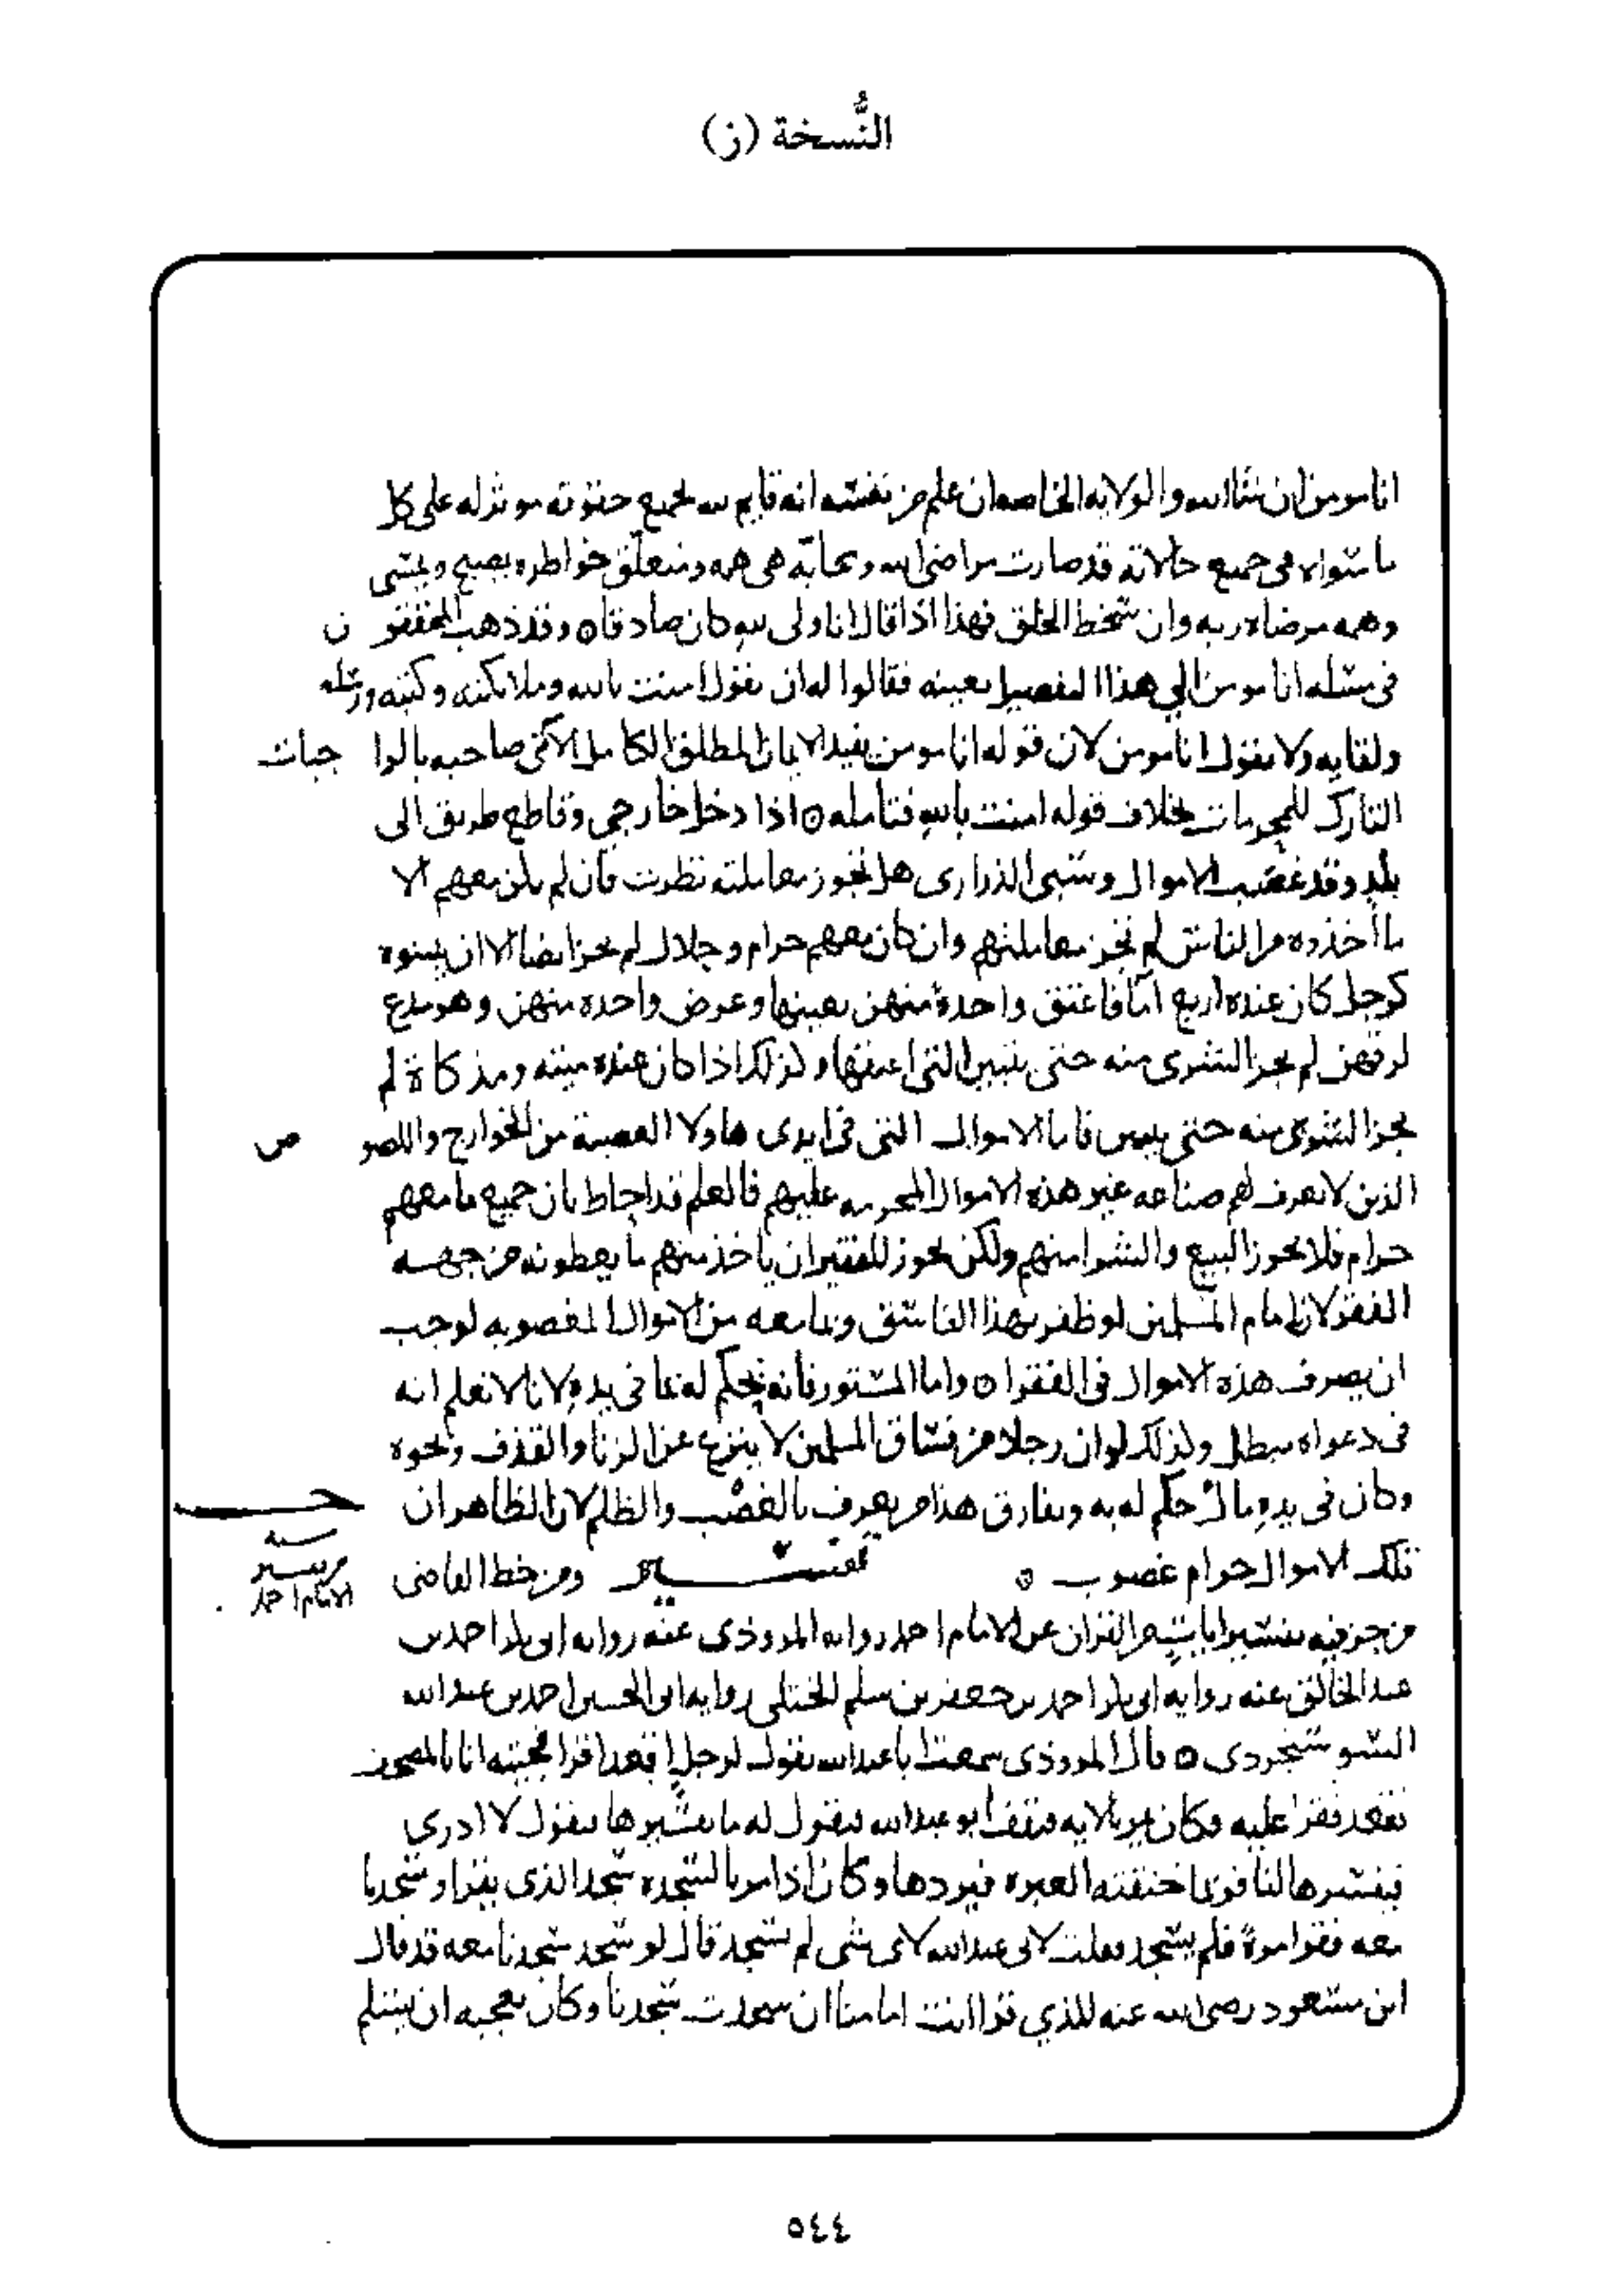 النُّسخة (ز)
انا مومن ان شا الله والولايه الخاصه ان علم من نفسه انه قايم لله بجميع حقوقه موثر له على كل
ما سواه في جميع حالاته قد صارت مراضي الله ومحابه هي همه ومتعلق خواطره يصبح ويمسي
وهمه مرضاه ربه وان سخط الخلق فهذا اذا قال انا ولي لله كان صادقا ٥ وقد ذهب المحققون
في مسله انا مومن الي هذا التفصيل بعينه فقالوا له ان يقول امنت بالله وملايكته وكتبه ورسله
ولقايه ولا يقول انا مومن لان قوله انا مومن يفيد الايمان المطلق الكامل الاتي صاحبه بالواجبات
التارك للمحرمات بخلاف قوله امنت بالله فتامله ٥ اذا دخل خارجي وقاطع طريق الى
بلد وقد غصب الاموال وسبى الذراري هل تجوز معاملته نظرت فان لم يكن معهم الا
ما اخذوه من الناس لم تجز معاملتهم وان كان معهم حرام وحلال لم يجز ايضا الا ان يبينوه
كرجل كان عنده اربع اما فاعتق واحدة منهن بعينها وعرض واحده منهن وهو مدع
لرقهن لم يجز التشرى منه حتى يتبين التي اعتقها وكذلك اذا كان عنده ميته ومذكاة لم
يجز الشرى منه حتى يبين فاما الاموال التي في ايدي هاولا العصبة من الخوارج واللصوص
الذين لا يعرف لهم صناعه غير هذه الاموال المحرمه عليهم فالعلم قد احاط بان جميع ما معهم
حرام فلا يجوز البيع والشرا منهم ولكن يجوز للفقير ان ياخذ منهم ما يعطونه من جهه
الفقر لان امام المسلمين لو ظفر بهذا الفاسق وبما معه من الاموال المغصوبه لوجب
ان يصرف هذه الاموال في الفقرا ٥ واما المستور فانه يحكم له بما في يده لانا لا نعلم انه
في دعواه مبطل وكذلك لو ان رجلا من فساق المسلمين لا ينزع عن الزنا والقذف ونحوه
وكان في يده مال حكم له به ويفارق هذا من يعرف بالغصب والظلم لان الظاهر ان
تلك الاموال حرام غصوب ٥ تفسير ومن خط القاضي
الامام احمد
من جز فيه تفسير ايات من القران عن الامام احمد روايه المروذي عنه روايه ابي بكر احمد بن
عبد الخالق عنه روايه ابي بكر احمد بن جعفر بن سلم الختلي روايه ابي الحسين احمد بن عبد الله
السوسنجردي ٥ قال المروذي سمعت ابا عبد الله يقول لرجل اقعد اقرا فجيته انا بالمصحف
فقعد فقرا عليه فكان يمر بالايه فيقف ابو عبد الله فيقول له ما تفسيرها فيقول لا ادري
فيفسرها لنا فربما خنقته العبره فيردها وكان اذا مر بالسجده سجد الذي يقرا وسجدنا
معه فقرا مرة فلم يسجد فقلت لابي عبد الله لاي شي لم تسجد قال لو سجد سجدنا معه قد قال
ابن مسعود رضي الله عنه للذي قرا انت امامنا ان سجدت سجدنا وكان يعجبه ان يسلم
٥٤٤